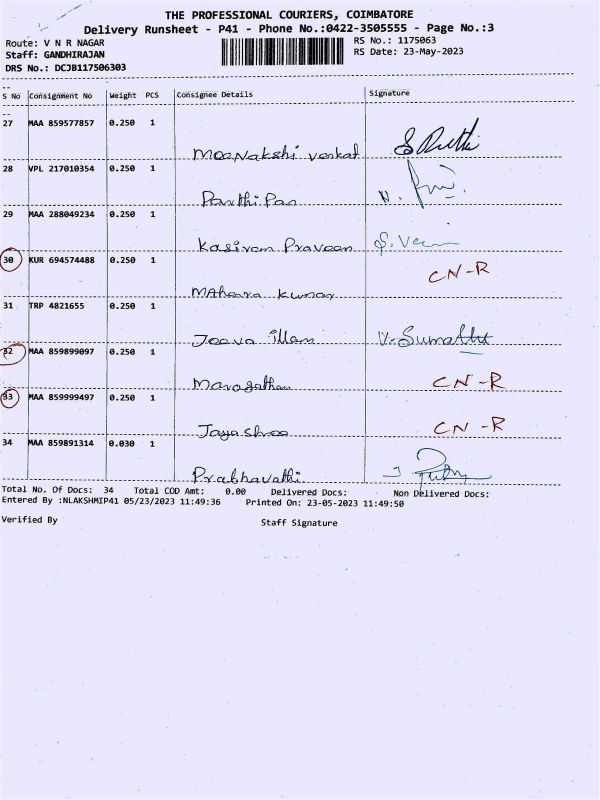 THE PROFESSIONAL COURIERS, COIMBATORE
Delivery Runsheet - P41 - Phone No.:0422-3505555 - Page No.:3
Route: V N R NAGAR
RS No.: 1175063
Staff: GANDHIRAJAN
RS Date: 23-May-2023
DRS No.: DCJB117506303
S No Consignment No Weight PCS Consignee Details Signature
27 MAA 859577857 0.250 1
Meenakshi venkat
28 VPL 217010354 0.250 1
Parthi Pan
29 MAA 288049234 0.250 1
Kasiram Praveen
30 KUR 694574488 0.250 1 CN-R
Maheara kumar
31 TRP 4821655 0.250 1
Jeeva illam V. Sumathi
32 MAA 859899097 0.250 1 CN-R
Maragatham
33 MAA 859999497 0.250 1 CN-R
Jayashree
34 MAA 859891314 0.030 1
Prabhavathi
Total No. Of Docs: 34 Total COD Amt: 0.00 Delivered Docs: Non Delivered Docs:
Entered By :NLAKSHMIP41 05/23/2023 11:49:36 Printed On: 23-05-2023 11:49:50
Verified By Staff Signature